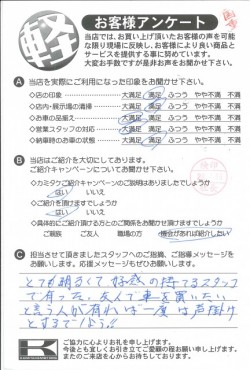 軽
お客様アンケート
当店では、お買い上げ頂いたお客様の声を可能
な限り現場に反映し、お客様により良い商品と
サービスを提供する事に努めております。
大変お手数ですが是非お声をお聞かせ下さい。
A 当店を実際にご利用になった印象をお聞かせ下さい。
◇店の印象 大満足 満足 ふつう やや不満 不満
◇店内・展示場の清掃 大満足 満足 ふつう やや不満 不満
◇お車の品揃え 大満足 満足 ふつう やや不満 不満
◇営業スタッフの対応 大満足 満足 ふつう やや不満 不満
◇納車時のお車の状態 大満足 満足 ふつう やや不満 不満
B 当店はご紹介を大切にしてあります。
ご紹介キャンペーンについてお聞かせ下さい。
◇カミタケご紹介キャンペーンのご説明はありましたでしょうか
はい いいえ
◇ご紹介を頂けますでしょうか
はい いいえ
◇具体的にご紹介頂ける方とのご関係をお聞かせ頂けますでしょうか
ご親族 ご友人 職場の方 機会があれば紹介したい
C 担当させて頂きましたスタッフへのご指摘、ご指導メッセージを
お願いします。応援メッセージもぜひお願いします。
とても明るくて好感の持てるスタッフ
で有った。友人で車を買いたい
と言う人が有れば一度は声掛け
とするでしょう!!
ご協力に心よりお礼を申し上げます。
今後とも宜しくお引き立てご愛顧の程お願い申し上げます。
またのご来店を心からお待ちしております。